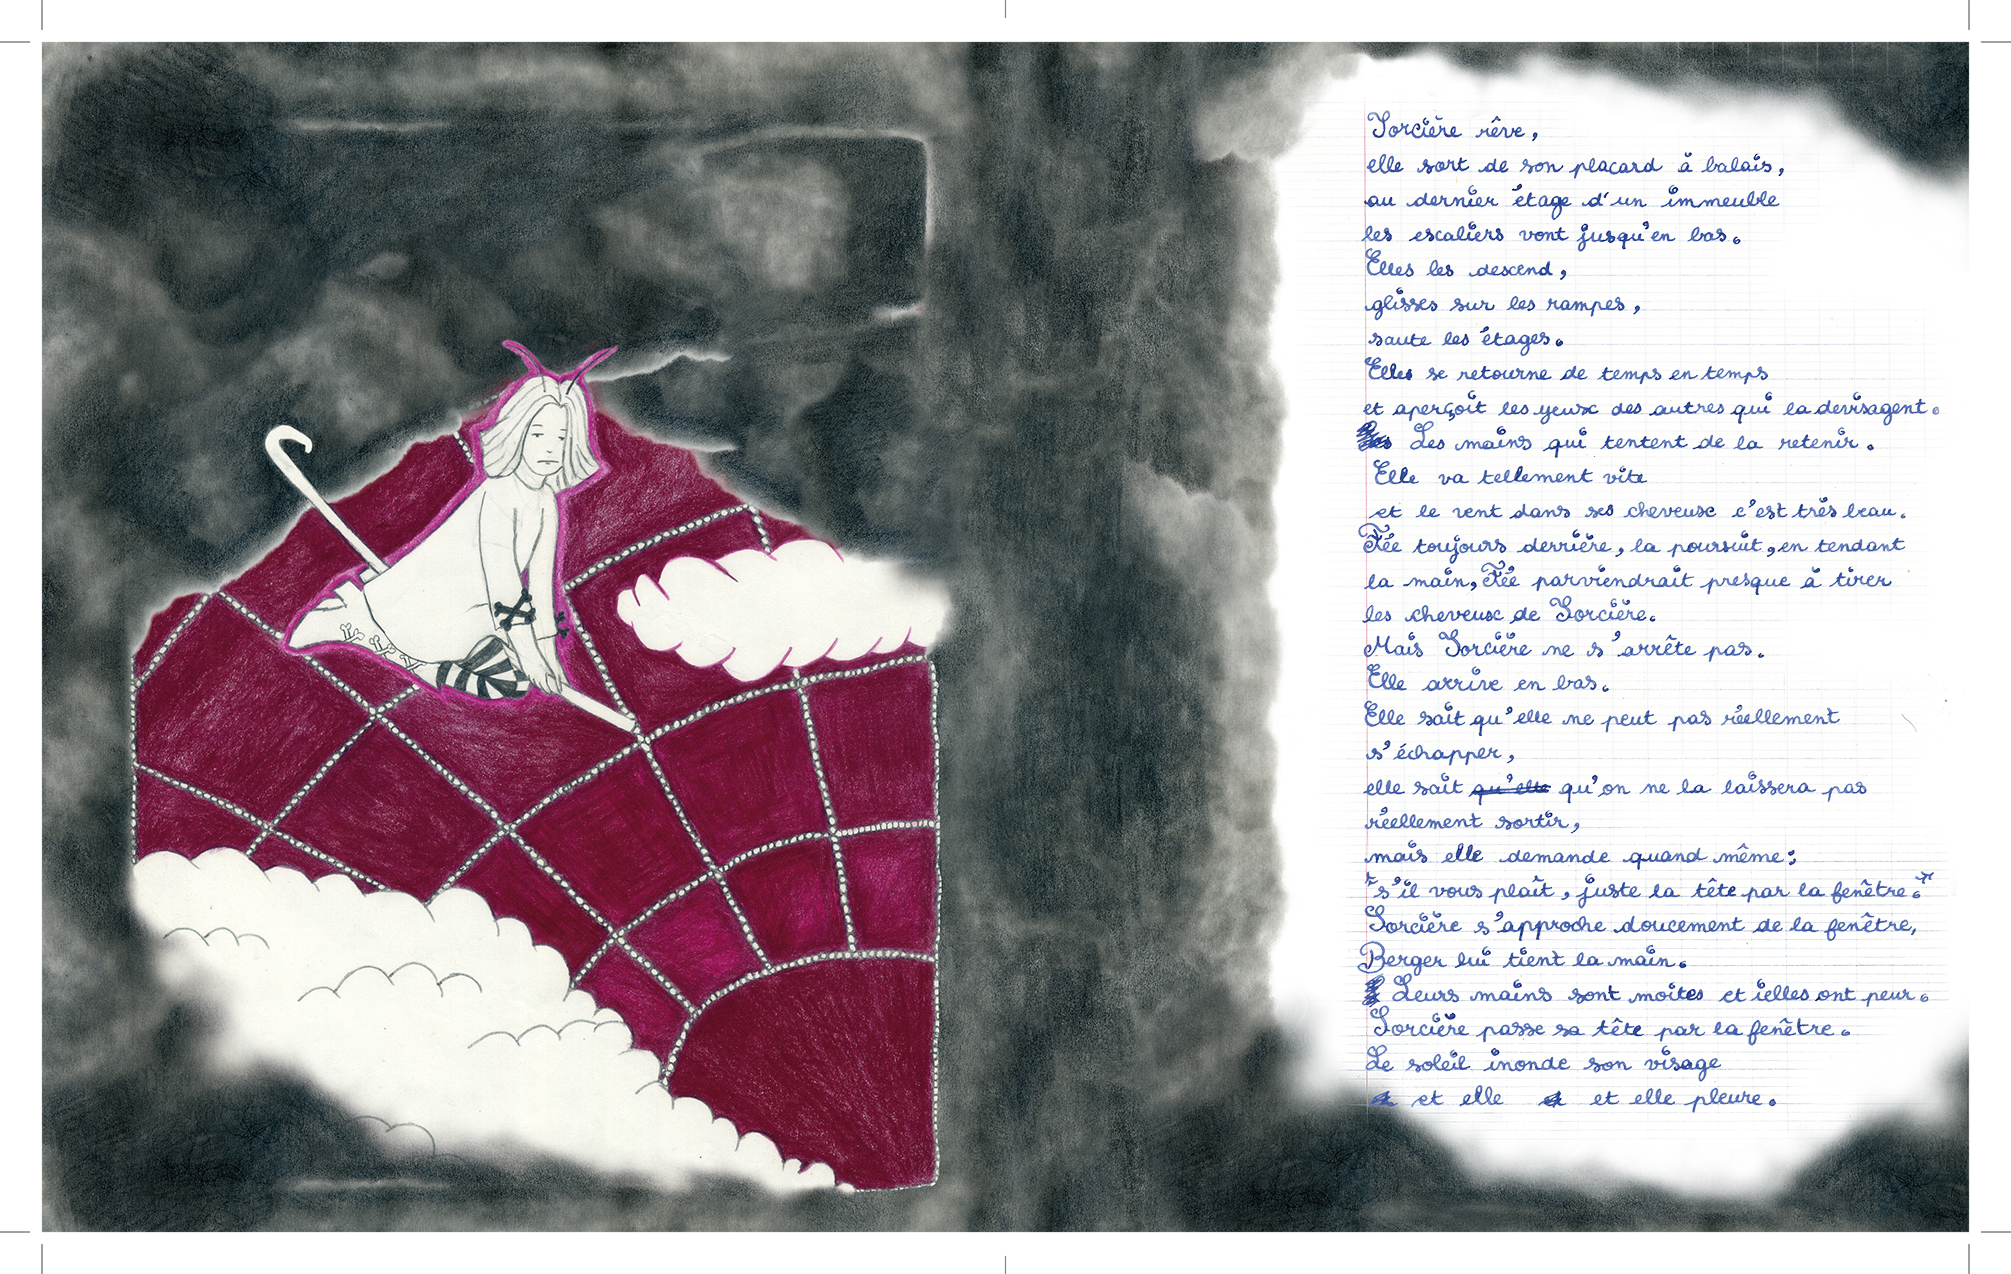 Sorcière rêve,
elle sort de son placard à balais,
au dernier étage d'un immeuble
les escaliers vont jusqu'en bas.
Elles les descend,
glisses sur les rampes,
saute les étages.
Elles se retourne de temps en temps
et aperçoit les yeux des autres qui la devisagent.
Les mains qui tentent de la retenir.
Elle va tellement vite
et le vent dans ses cheveux c'est très beau.
Fée toujours derrière, la poursuit, en tendant
la main, Fée parviendrait presque à tirer
les cheveux de Sorcière.
Mais Sorcière ne s'arrête pas.
Elle arrive en bas.
Elle sait qu'elle ne peut pas réellement
s'échapper,
elle sait qu'elle qu'on ne la laissera pas
réellement sortir,
mais elle demande quand même :
"s'il vous plaît, juste la tête par la fenêtre."
Sorcière s'approche doucement de la fenêtre,
Berger lui tient la main.
Leurs mains sont moites et ielles ont peur.
Sorcière passe sa tête par la fenêtre.
Le soleil inonde son visage
et elle et elle pleure.